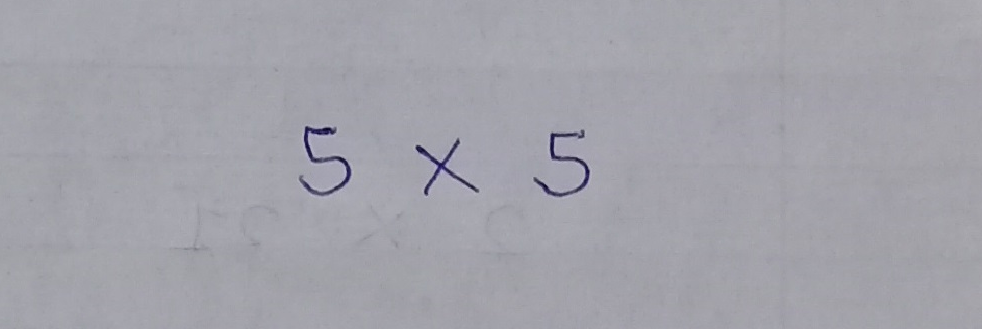 5 × 5